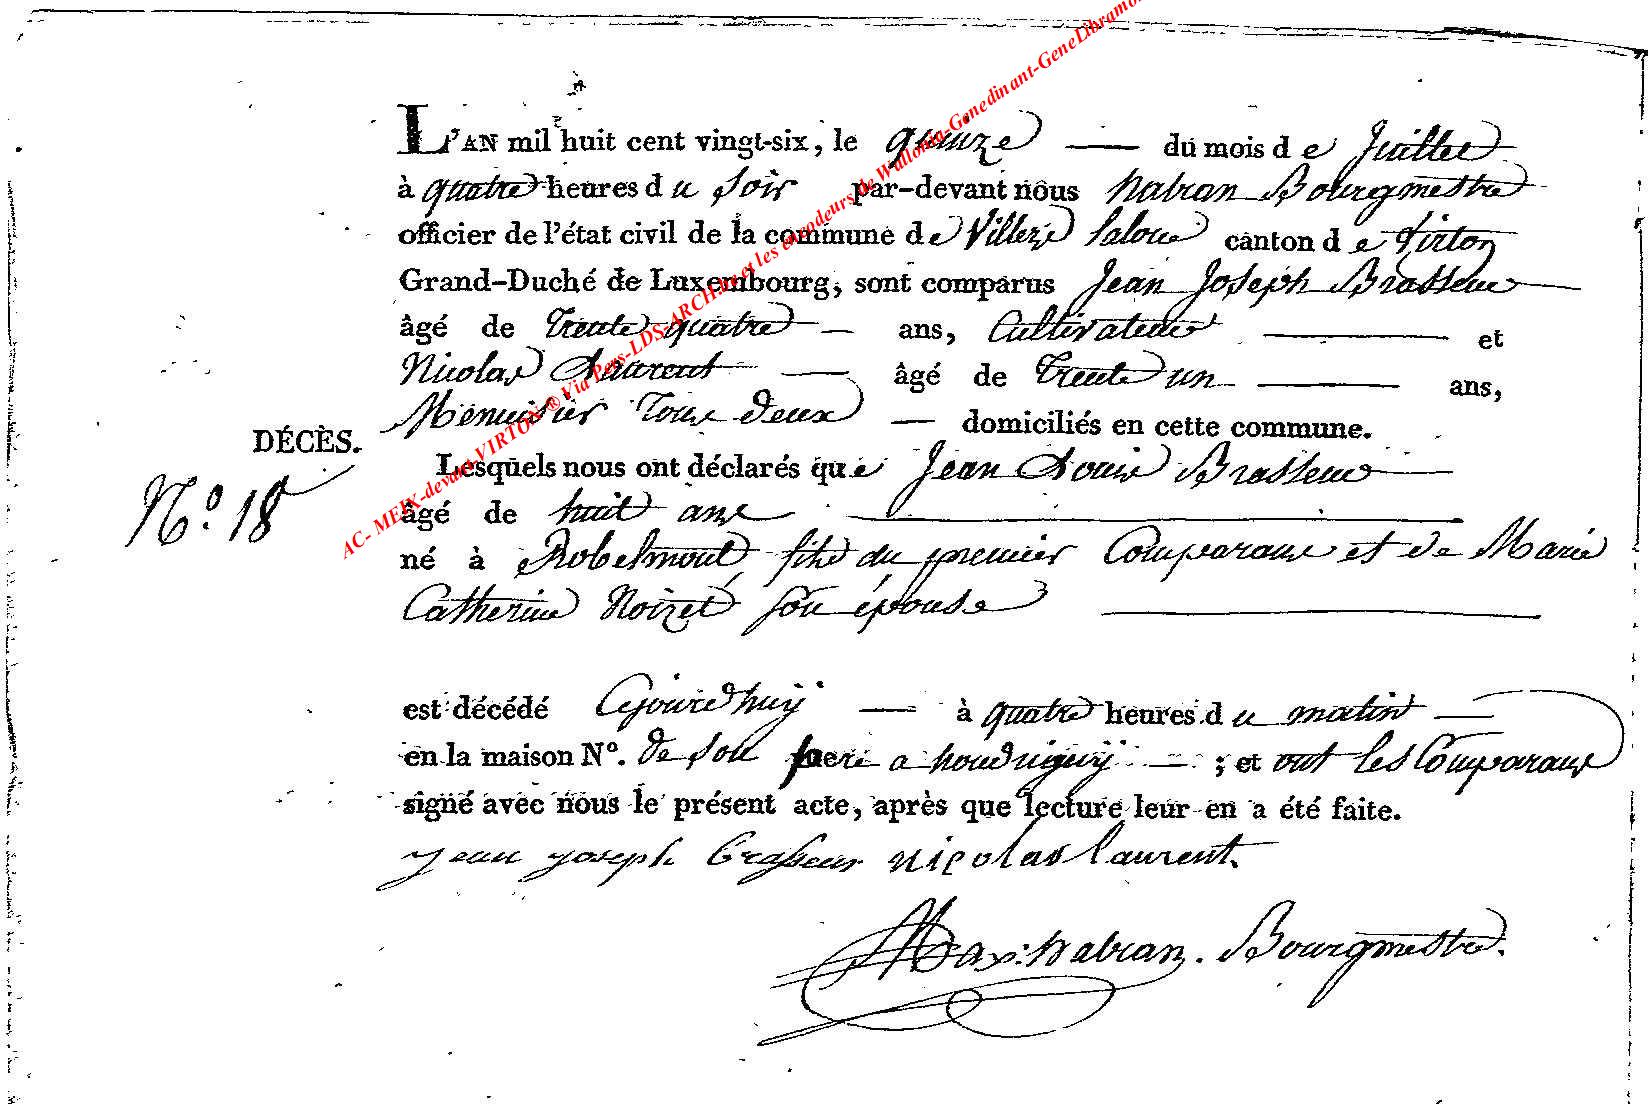 L'AN mil huit cent vingt-six, le quinze du mois de Juillet
à quatre heures du soir par-devant nous nabran Bourgmestre
officier de l'état civil de la commune de Villers Laloue canton de Virton
Grand-Duché de Luxembourg, sont comparus Jean Joseph Brasseur
âgé de Trente quatre ans, Cultivateur et
Nicolas Laurent âgé de Trente un ans,
Menuisier Tous deux domiciliés en cette commune.
DÉCÈS.
N.º 18
Lesquels nous ont déclarés que Jean Louis Brasseur
âgé de huit ans
né à Robelmont fils du premier Comparans et de Marie
Catherine Noizet son épouse
est décédé Cejourdhuy à quatre heures du matin
en la maison Nº. de son pere a houdrigny ; et ont les Comparans
signé avec nous le présent acte, après que lecture leur en a été faite.
jean joseph brasseur nicolas laurent.
Max: nabran. Bourgmestre.
AC- MEIX-devant-VIRTON ® Via Pers-LDS-ARCH.be et les encodeurs de Wallonia-Genedinant-GeneLibramo